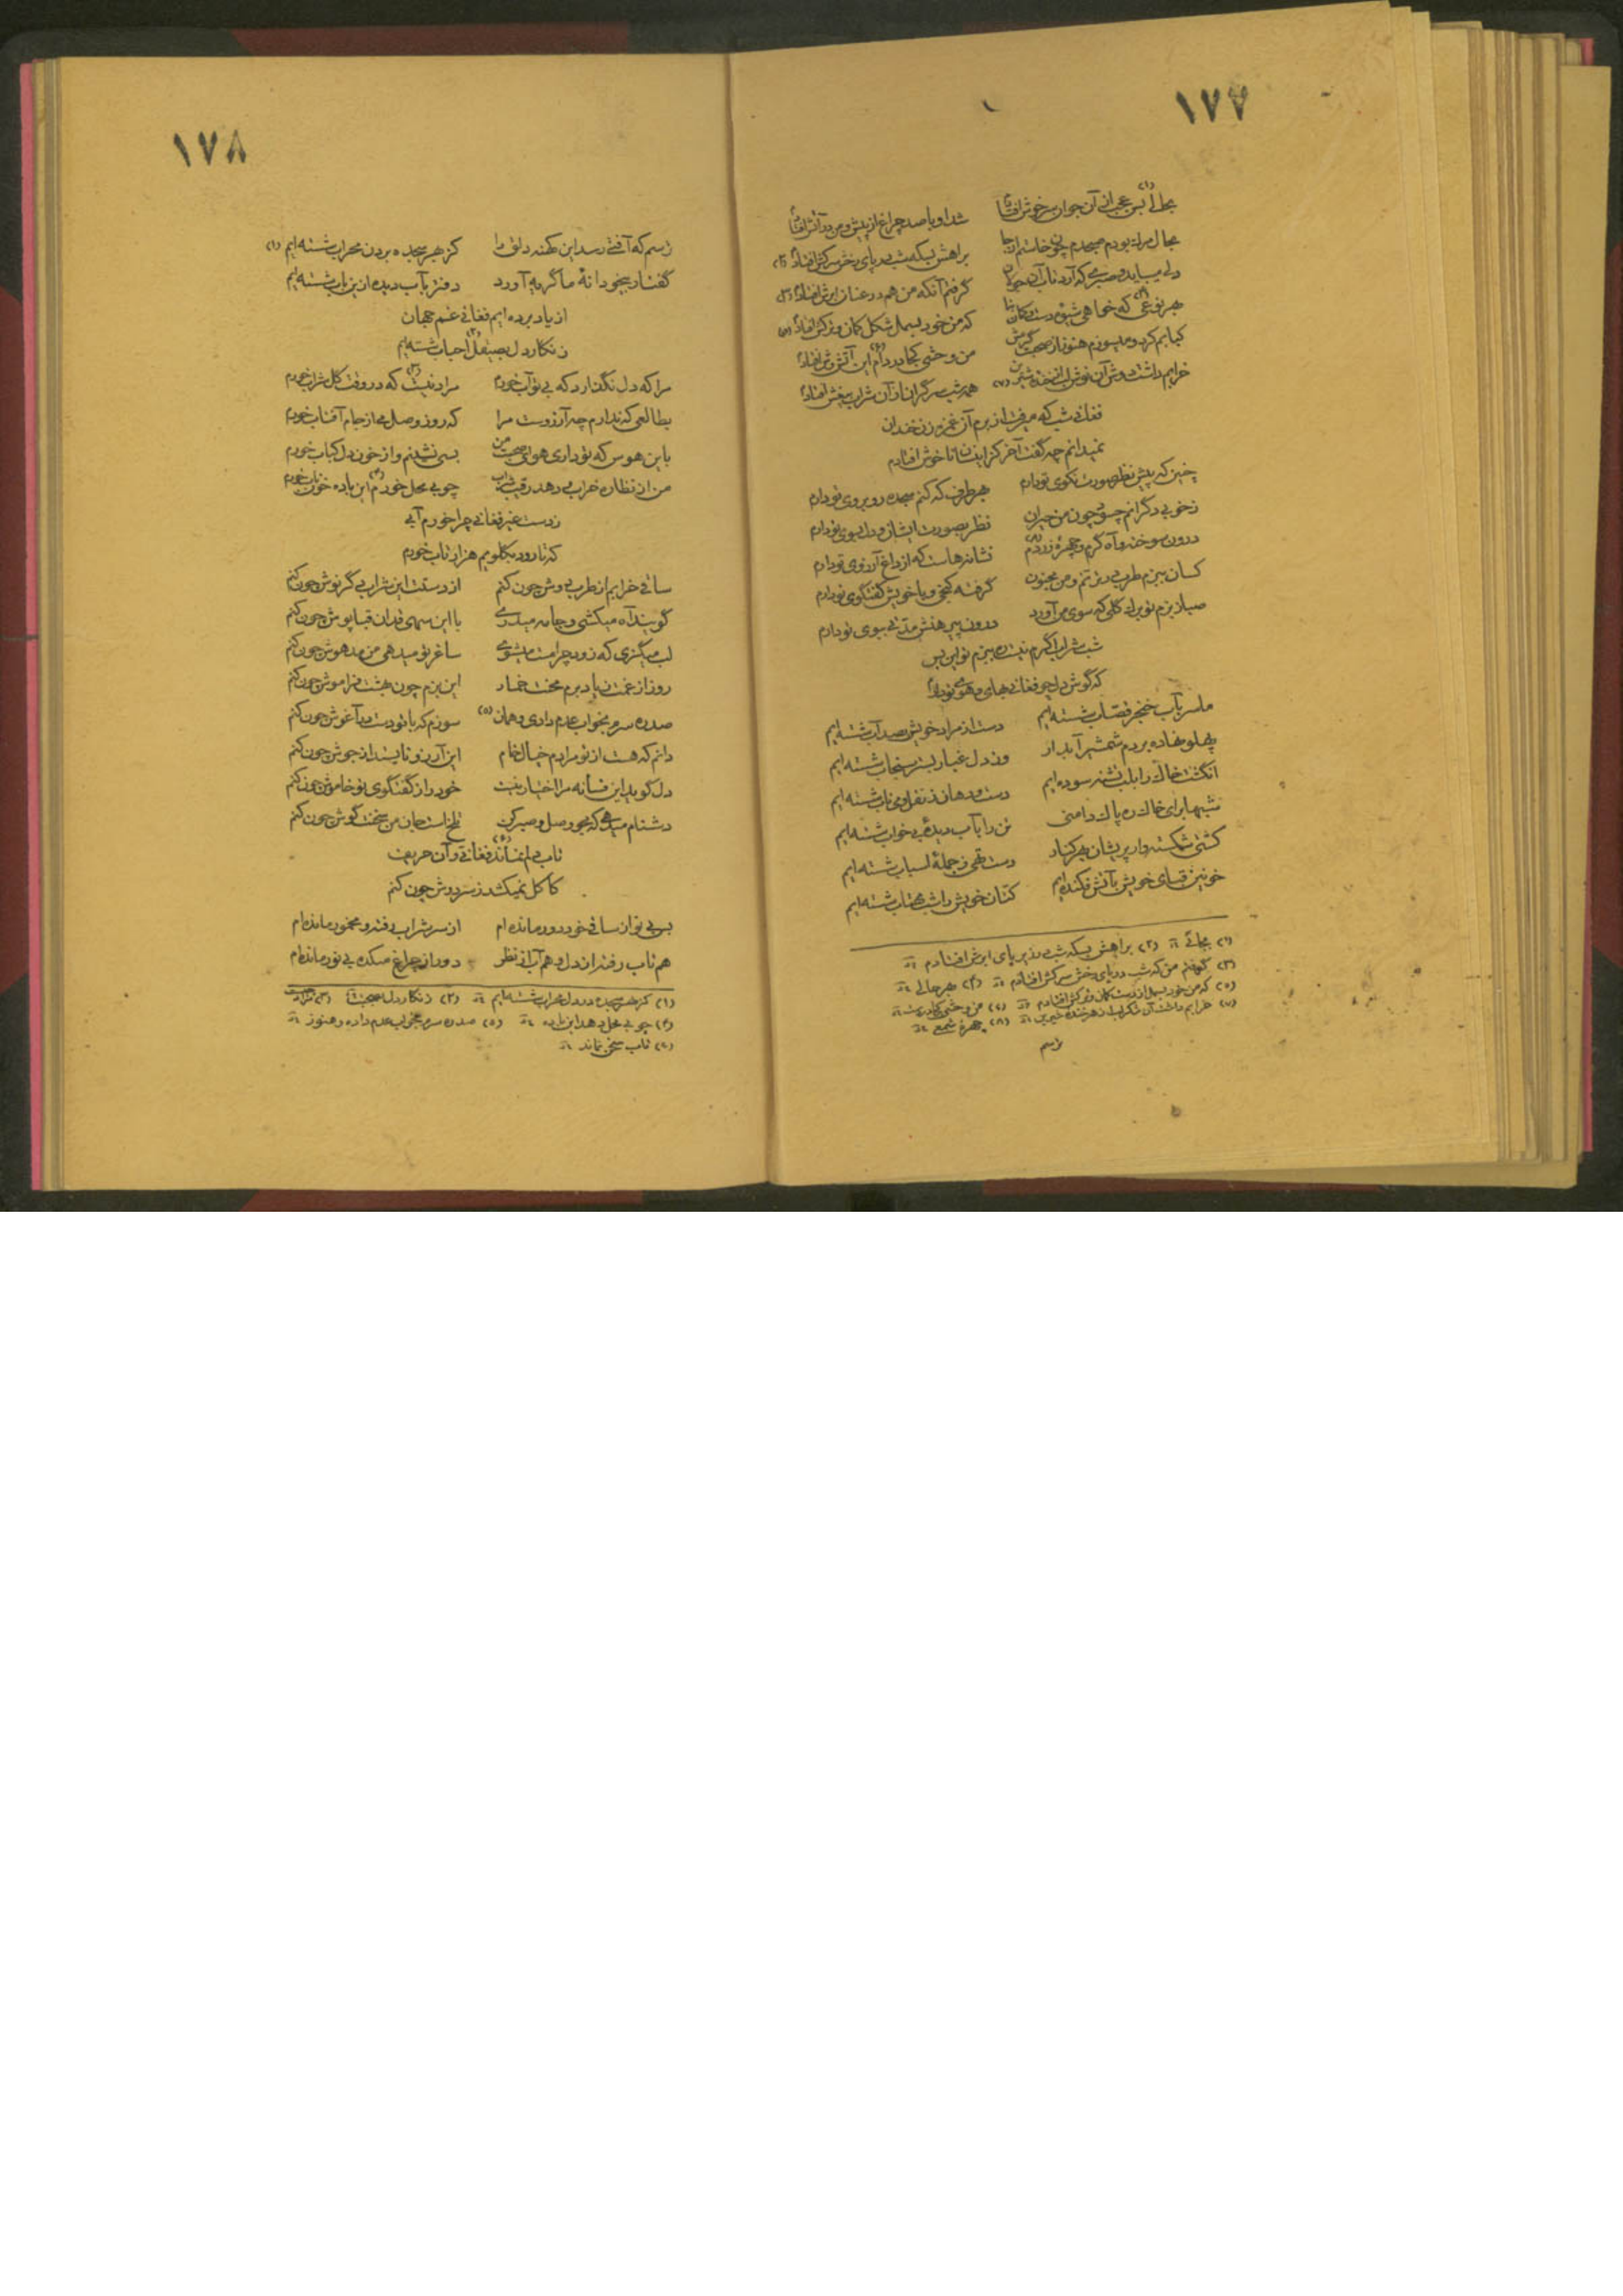 ۱۷۷
بحالی بس عجب از آن جوان سرخوش افتادم شد او با صد چراغ از پیش و من در آتش افتادم
بحال مرك بودم صبحدم چون خاستم از جا براهش بسکه شب در پای رخش سرکش افتادم (۲)
دلی میباید و صبری که آرد تاب آن جولان گرفتم آنکه من هم در عنان ابرش افتادم (۳)
بهر نوعی که خواهی شو دست و کمان که من خود بسمل شکل کمان و ترکش افتادم (۵)
کبابم کرد و میسوزم هنوز از صحبت گرمش من وحشی کجا در دام این آتش وش افتادم
خرابم داشت دوش آن نوش لب از خنده شیرین (۷) همه شب سرگران از آن شراب بیغش افتادم
فغانی شب که میرفت از برم آن غمزه زن خندان
نمیدانم چه گفت آخر کز اینسان ناخوش افتادم
چنین که پیش نظر صورت نکوی تو دارم بهر طرف که کنم سجده رو بروی تو دارم
ز خوبی دگرانم چسود چون من حیران نظر بصورت ایشان و دل بسوی تو دارم
درون سوخته و آه گرم و چهره زردم (۸) نشانه هاست که از داغ آرزوی تو دارم
کسان ببزم طرب در ترنم و من مجنون گرفته کنجی و با خویش گفتگوی تو دارم
صبا ز بزم تو برك گلی که سوی من آورد درون پیرهنش مدتی ببوی تو دارم
شب شراب اگرم نیست ره ببزم تو این بس
که گوش دل چو فغانی بهای و هوی تو دارم
ما سر بآب خنجر قصاب شسته ایم دست از مراد خویش بصد آب شسته ایم
پهلو نهاده بر دم شمشیر آبدار وز دل غبار بستر سنجاب شسته ایم
انگشت خاك را بلب تشنه سوده ایم دست و دهان ز نقل و می ناب شسته ایم
شبها برای خاك ره پاك دامنی تن را بآب دیده بی خواب شسته ایم
کشتی شکسته وار پریشان بهر کنار دست تهی ز جمله اسباب شسته ایم
خونین قبای خویش بآتش فکنده ایم کتان خویش را شب مهتاب شسته ایم
(۱) بجائی (۲) براهش بسکه شب در زیر پای ابرش افتادم
(۳) گرفتم من که شب در پای رخش سرکش افتادم (۴) بهر حالی
(۵) که من خود بسمل از دست کمان و ترکش افتادم (۶) من وحشی کجا در دست
(۷) خرابم داشت آن شکر لب از زهر خنده شیرین (۸) چهرۀ شمع
ترسم
۱۷۸
ترسم که آفتی رسد این کهنه دلق را کز بهر سجده بردن محراب شسته ایم (۱)
گفتار بیخودانۀ ما گریه آورد دفتر بآب دیده ازین باب شسته ایم
از یاد برده ایم فغانی غم جهان
زنگار دل بصیقل احباب شسته ایم
مرا که دل نگذارد که بی تو آب خورم مراد نیست که در وقت گل شراب خورم
بطالعی که ندارم چه آرزوست مرا که روز وصل می از جام آفتاب خورم
باین هوس که تو داری هوای صحبت من بسی نشینم و از خون دل کباب خورم
من از نظاره خراب می دهد رقیب شراب چو بی محل خورم این باده خون ناب خورم
ز دست غیر فغانی چرا خورم آبی
که تا رود بگلویم هزار تاب خورم
ساقی خرابم از طرب دوش چون کنم از دستت این شراب می گر نوش چون کنم
گویند آه میکشی و جامه میدری با این سهی قدان قباپوش چون کنم
لب میگزی که زود چرا مست میشوی ساغر تو میدهی من مدهوش چون کنم
روز از غمت زیاد برم محنت خمار این بزم چون بهشت فراموش چون کنم
صد ره سرم بخواب عدم دادی و همان (۵) سوزم که با تو دست در آغوش چون کنم
دانم که هست از تو مرادم خیال خام این آرزو نایستد از جوش چون کنم
دل گوید این فسانه مرا اختیار نیست خود را ز گفتگوی تو خاموش چون کنم
دشنام میدهی که مجو وصل و صبر کن تلخ است جان من سخنت گوش چون کنم
تاب دلم نماند فغانی و آن حریف
کاکل نمیکشد ز سر دوش چون کنم
بی تو از ساقی خود دور مانده ام از سر شراب رفته و مخمور مانده ام
هم تاب رفته از دل و هم آب از نظر دور از چراغ میکده بی نور مانده ام
(۱) کز بهر سجده در دل محراب شسته ایم (۲) زنگار دل بصحبت (۳) مراد
(۴) چو بی محل دهد این باده (۵) صد ره سرم بخواب عدم داده و هنوز
(۶) تاب سخن نماند